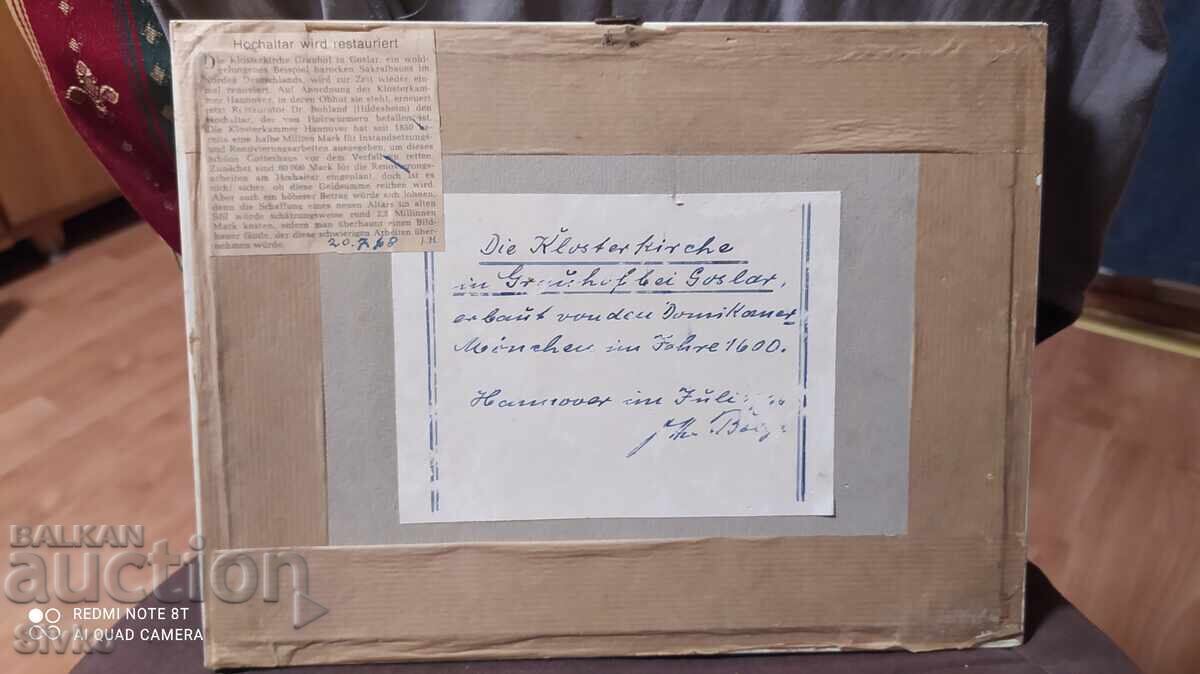 Hochaltar wird restauriert
Die Klosterkirche Grauhof in Goslar, ein wohl-
gelungenes Beispiel barocken Sakralbaues im
Norden Deutschlands, wird zur Zeit wieder ein-
mal renoviert. Auf Anordnung der Klosterkam-
mer Hannover, in deren Obhut sie steht, erneuert
jetzt Restaurator Dr. Bohland (Hildesheim) den
Hochaltar, der von Holzwürmern befallen ist.
Die Klosterkammer Hannover hat seit 1850
eine halbe Million Mark für Instandsetzungs-
und Renovierungsarbeiten ausgegeben, um dieses
schöne Gotteshaus vor dem Verfall zu retten.
Zunächst sind 60 000 Mark für die Renovierungs-
arbeiten am Hochaltar eingeplant, doch ist es
nicht sicher, ob diese Geldsumme reichen wird.
Aber auch ein höherer Betrag würde sich lohnen,
denn die Schaffung eines neuen Altars im alten
Stil würde schätzungsweise rund 2,3 Millionen
Mark kosten, sofern man überhaupt einen Bild-
hauer fände, der diese schwierigen Arbeiten über-
nehmen würde. J.H.
20.7.68
Die Klosterkirche
in Grauhof bei Goslar,
erbaut von den Domikaner
Mönchen im Jahre 1600.
Hannover im Juli
BALKAN
auction
REDMI NOTE 8T
AI QUAD CAMERA
Sivko